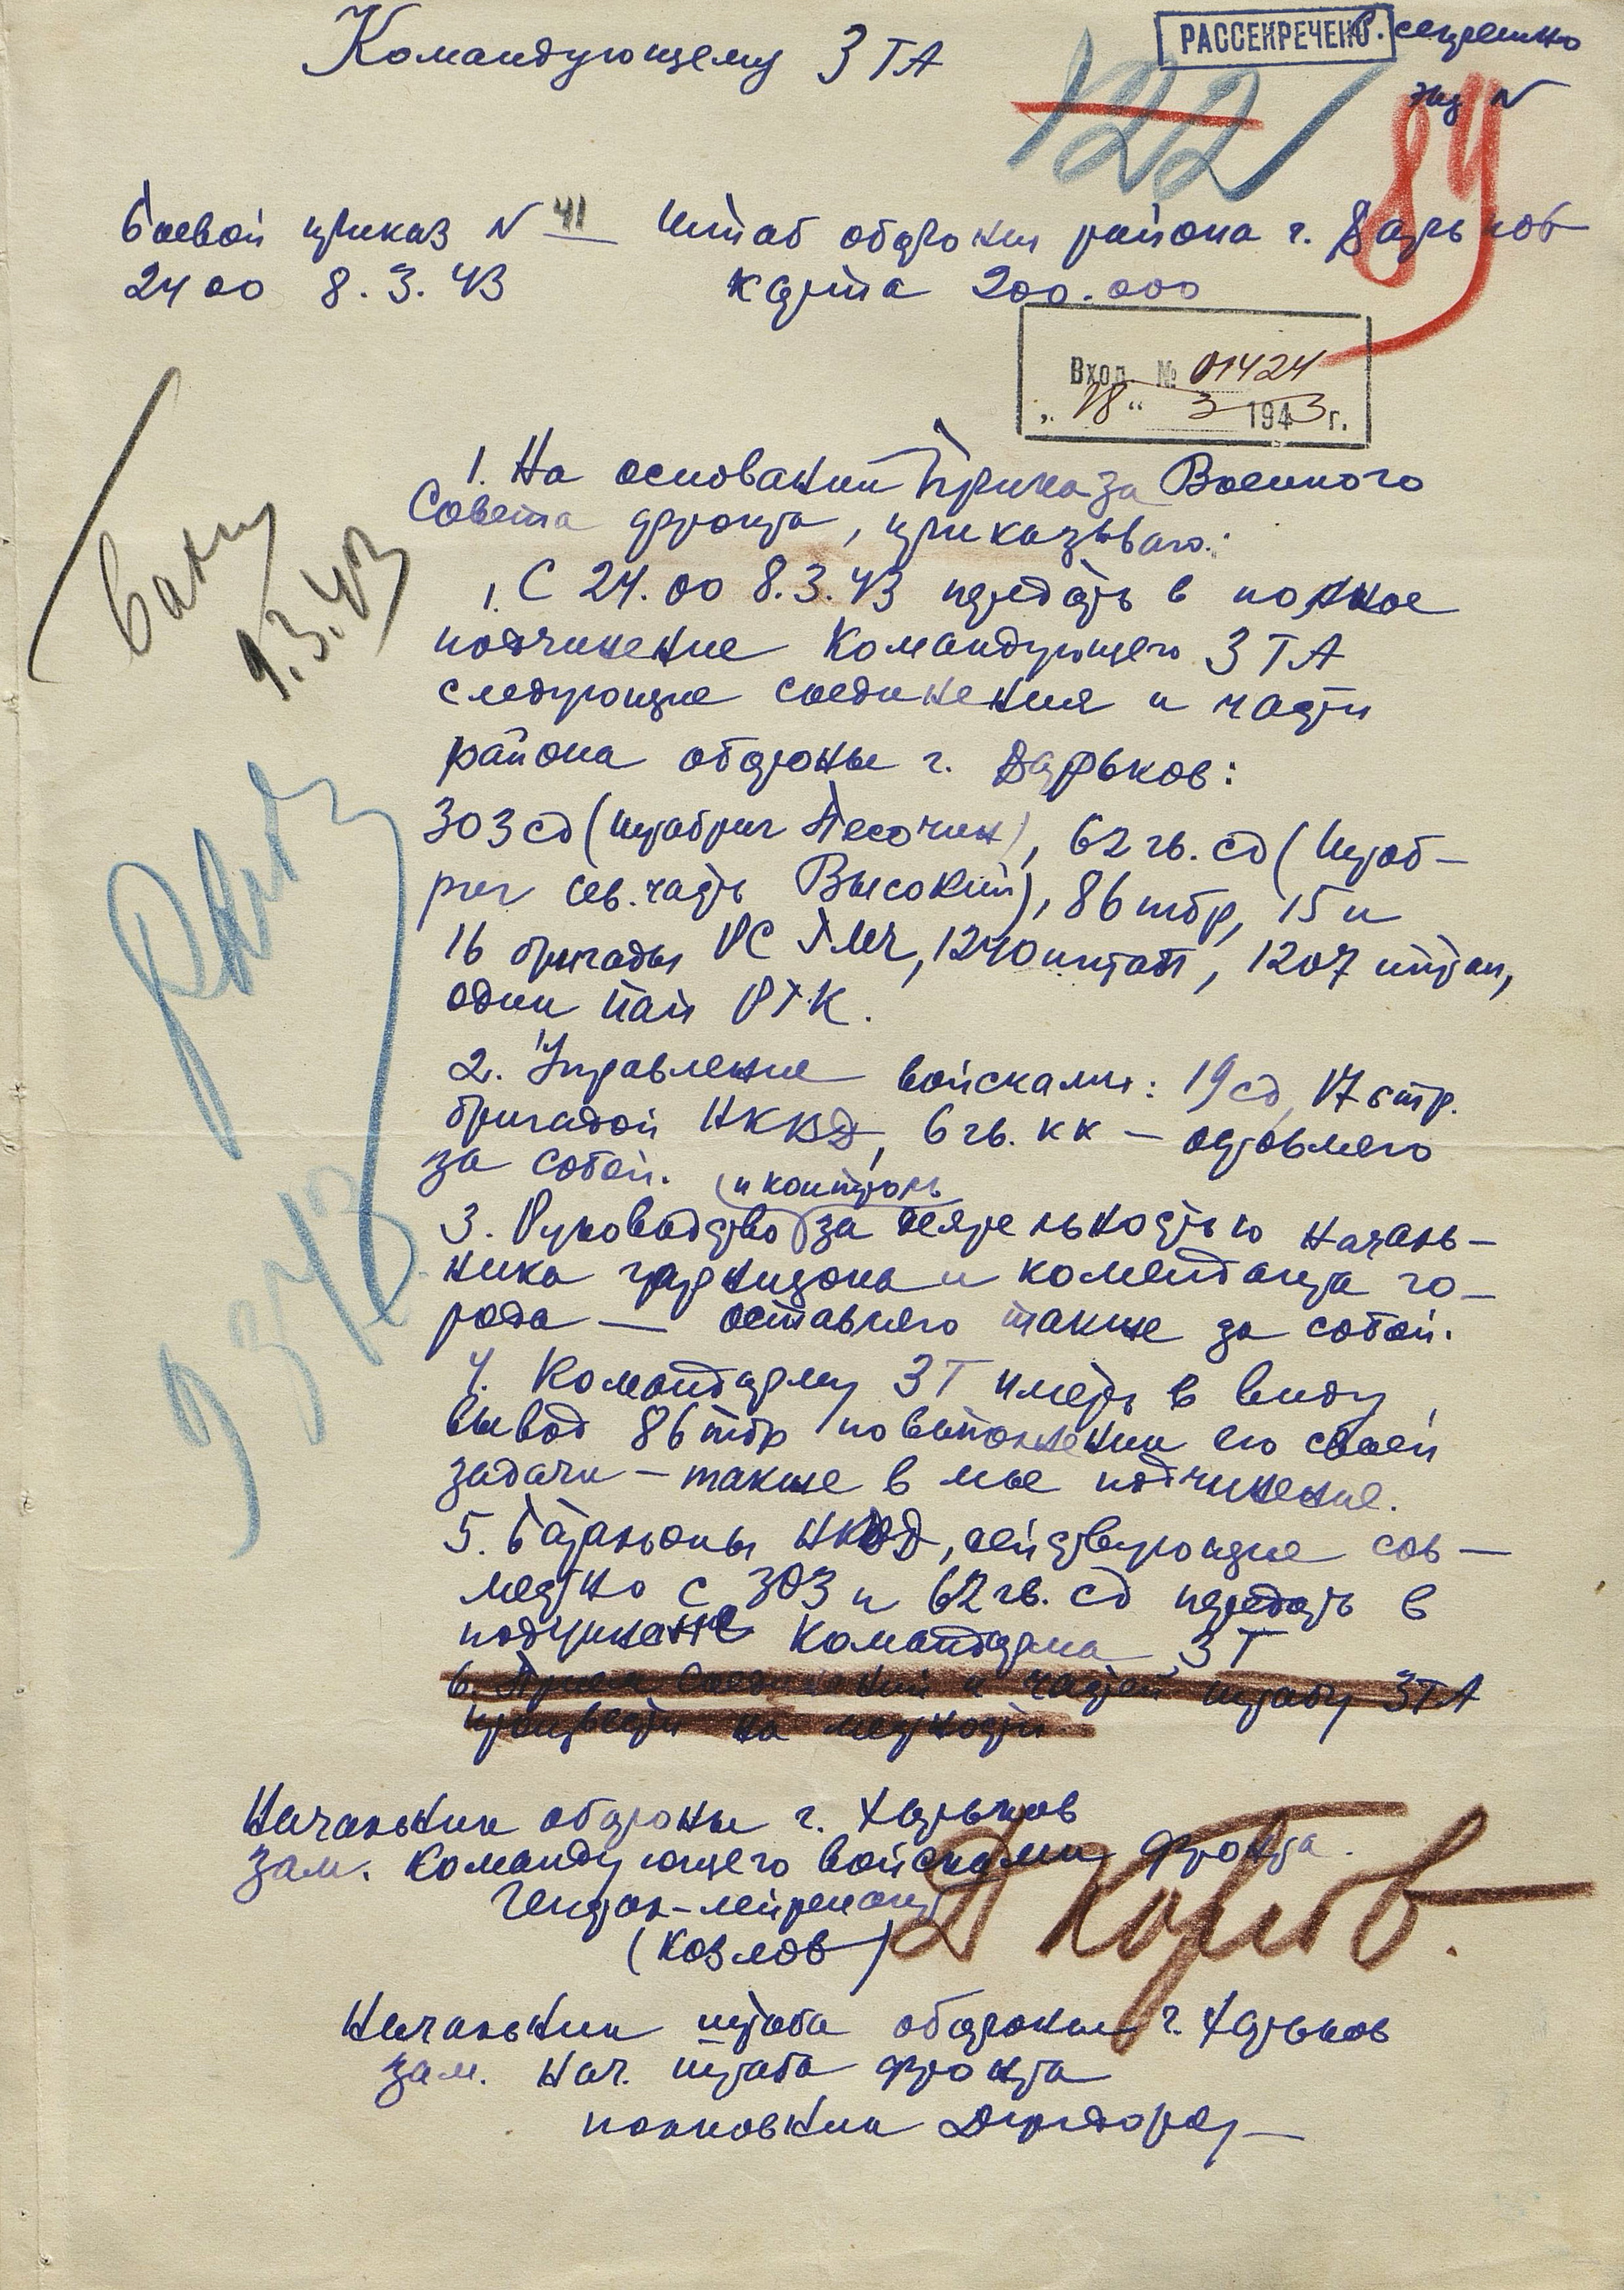 Командующему 3 ТА
РАССЕКРЕЧЕНО
С. секретно
Экз N
122
84
Боевой приказ N 41 Штаб обороны района г. Харьков
24 00 8.3.43 карта 200.000
Вход. № 01424
„18“ 3 1943 г.
1. На основании Приказа Военного
Совета фронта, приказываю:
1. С 24.00 8.3.43 передать в полное
подчинение Командующего 3 ТА
следующие соединения и части
района обороны г. Харьков:
303 сд (штадив Песочин), 62 гв. сд (Штаб-
сев. часть Высокий), 86 тбр, 15 и
16 бригады РС ГМЧ, 1240 иптап, 1207 иптап,
один пап РГК.
2. Управление войсками: 19 сд, 17 стр.
бригадой НКВД, 6 гв. кк — оставляю
за собой.
(и контроль
3. Руководство за деятельностью началь-
ника гарнизона и коменданта го-
рода — оставляю также за собой.
4. Командарму 3Т иметь в виду,
вывод 86 тбр по выполнении ею своей
задачи — также в мое подчинение.
5. Батальоны НКВД, действующие сов-
местно с 303 и 62 гв. сд передать в
подчинение Командарма 3Т
6. Прием соединений и частей штабу 3ТА
произвести на местности
Начальник обороны г. Харьков
зам. Командующего войсками фронта.
Генерал-лейтенант
(Козлов)
Д Козлов.
Начальник штаба обороны г. Харьков
зам. нач. штаба фронта
полковник
9.3.43
9 3 43